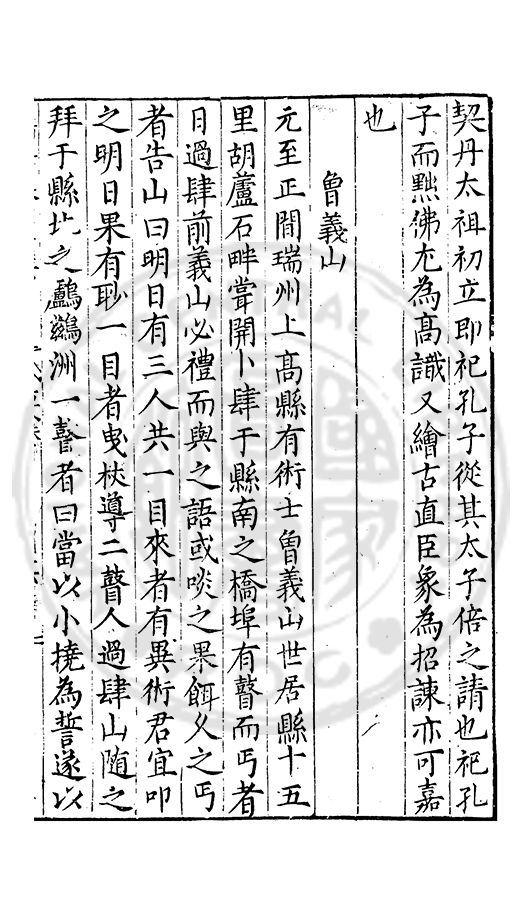 契丹太祖初立即祀孔子從其太子倍之請也祀孔
子而黜佛尤為高識又繪古直臣象為招諫亦可嘉
也
曾義山
元至正間瑞州上高縣有術士曾義山世居縣十五
里胡蘆石畔嘗開卜肆于縣南之橋埠有瞽而丐者
日過肆前義山必禮而與之語或啖之果餌久之丐
者告山曰明日有三人共一目來者有異術君宜叩
之明日果有眇一目者曳杖導二瞽人過肆山随之
拜于縣北之鸕鷀洲一瞽者曰當以小撓為誓遂以